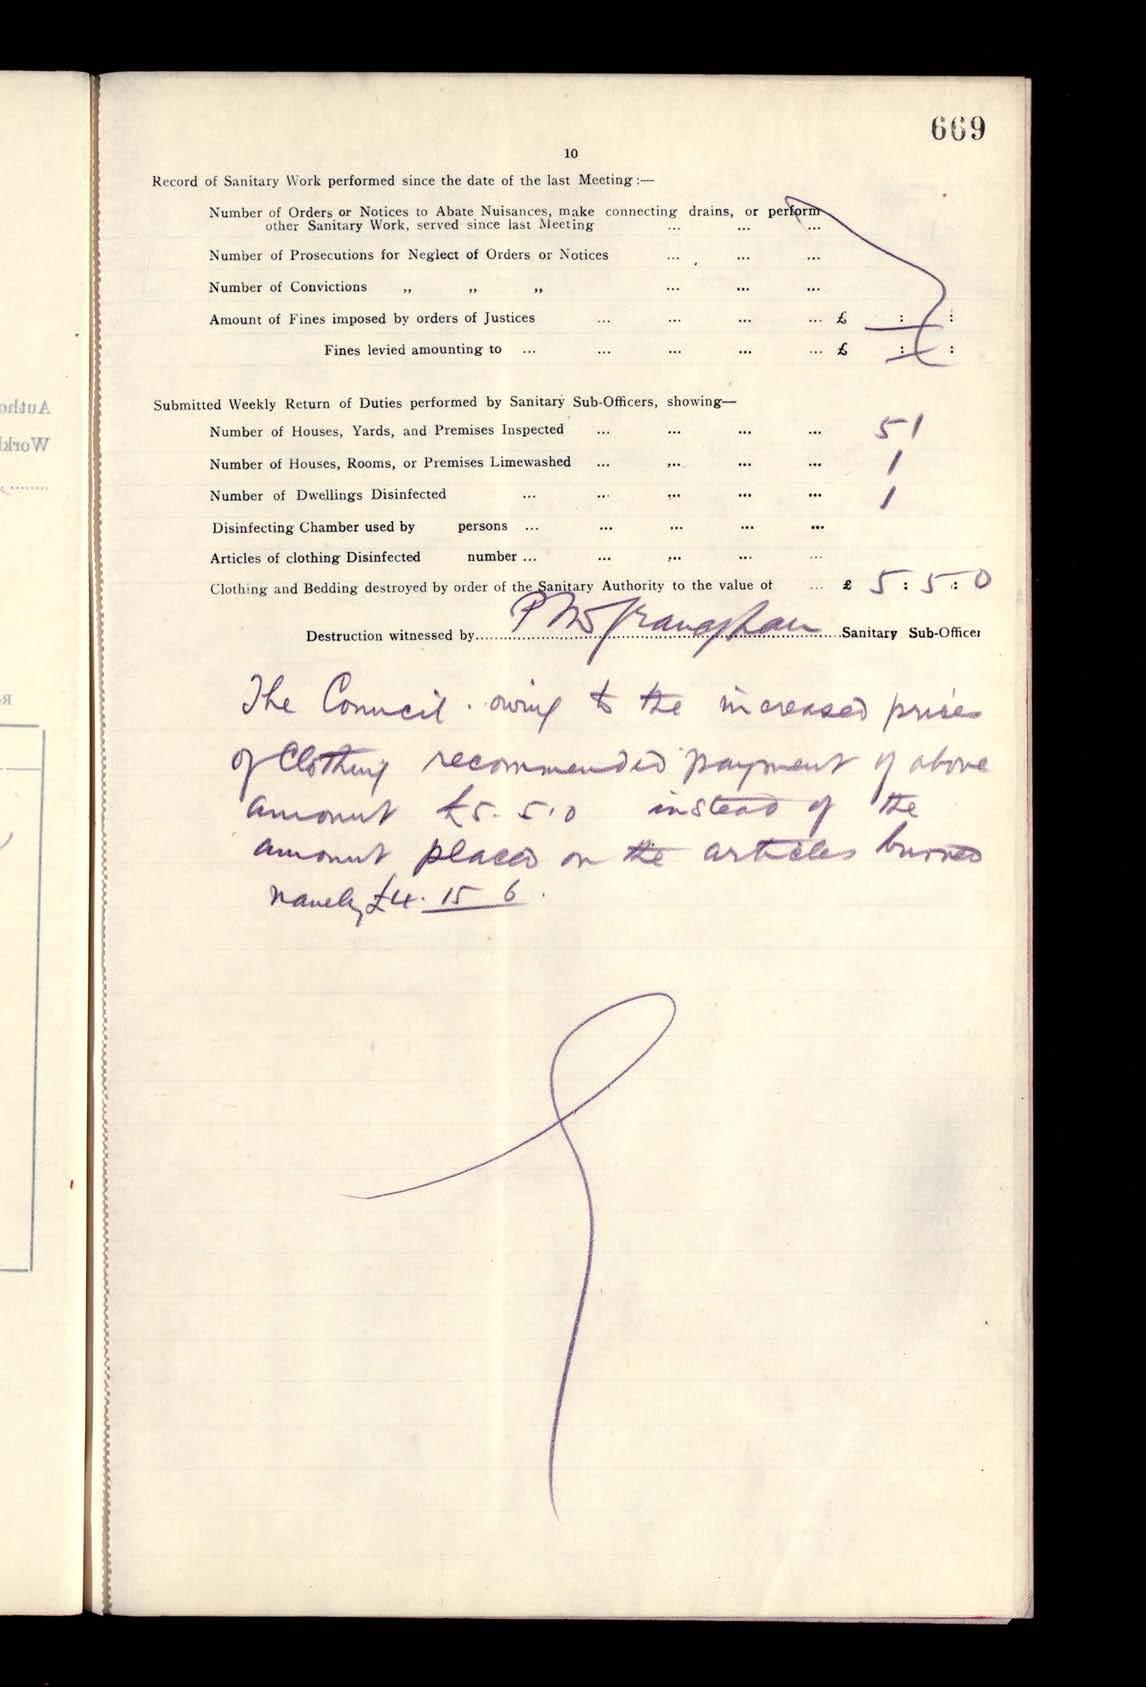 669
10
Record of Sanitary Work performed since the date of the last Meeting :—
Number of Orders or Notices to Abate Nuisances, make connecting drains, or perform
other Sanitary Work, served since last Meeting ... ... ...
Number of Prosecutions for Neglect of Orders or Notices ... ... ...
Number of Convictions „ „ „ ... ... ...
Amount of Fines imposed by orders of Justices ... ... ... ... £ : :
Fines levied amounting to ... ... ... ... ... £ : :
Submitted Weekly Return of Duties performed by Sanitary Sub-Officers, showing—
Number of Houses, Yards, and Premises Inspected ... ... ... ... 51
Number of Houses, Rooms, or Premises Limewashed ... ... ... ... 1
Number of Dwellings Disinfected ... ... ... ... ... 1
Disinfecting Chamber used by persons ... ... ... ... ...
Articles of clothing Disinfected number ... ... ... ... ...
Clothing and Bedding destroyed by order of the Sanitary Authority to the value of ... £ 5 : 5 : 0
Destruction witnessed by Sanitary Sub-Officer
The Council owing to the increased prices
of Clothing recommended payment of above
amount £5. 5. 0 instead of the
amount placed on the articles burned
namely £4. 15 6.
Autho
Workh